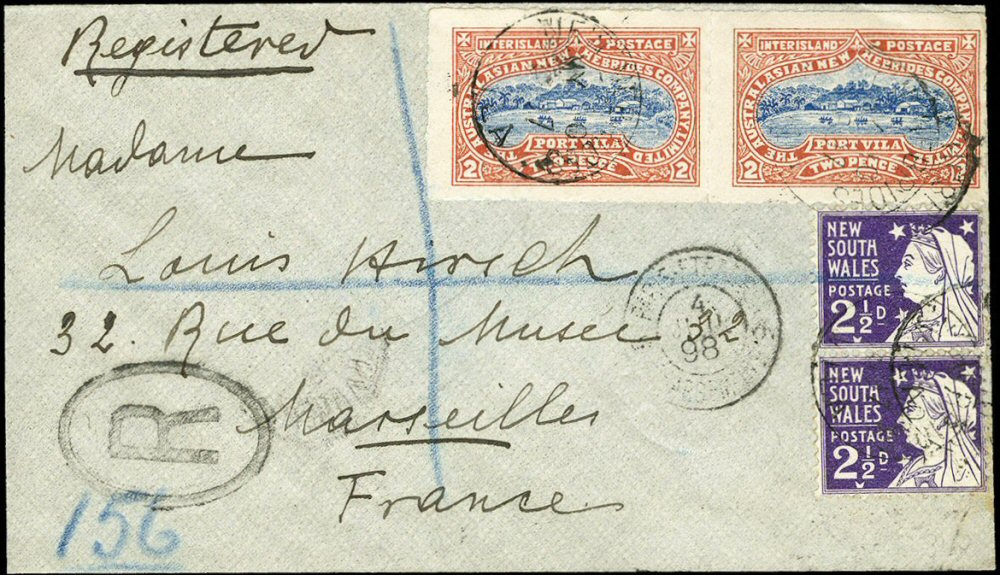 Registered
Madame
Louis Hirsch
32. Rue du Musée
Marseilles
France
R
156
INTERISLAND POSTAGE
THE AUSTRALASIAN NEW HEBRIDES COMPANY LIMITED
PORT VILA
2 TWO PENCE 2
INTERISLAND POSTAGE
THE AUSTRALASIAN NEW HEBRIDES COMPANY LIMITED
PORT VILA
2 TWO PENCE 2
NEW
SOUTH
WALES
POSTAGE
2½D
NEW
SOUTH
WALES
POSTAGE
2½D
4
98